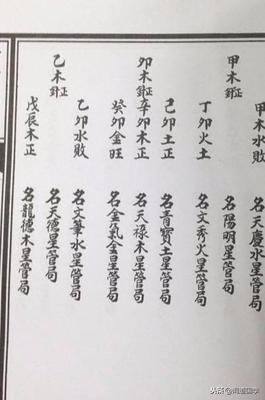 水敗 名天慶水星管局
甲木正針 名陽明星管局
丁卯火土 名文秀火星管局
己卯土正 名青寶土星管局
卯木正針 辛卯木正 名天祿木星管局
癸卯金旺 名金氣金星管局
乙卯水敗 名文筆水星管局
乙木正針 名天德星管局
戊辰木正 名龍德木星管局